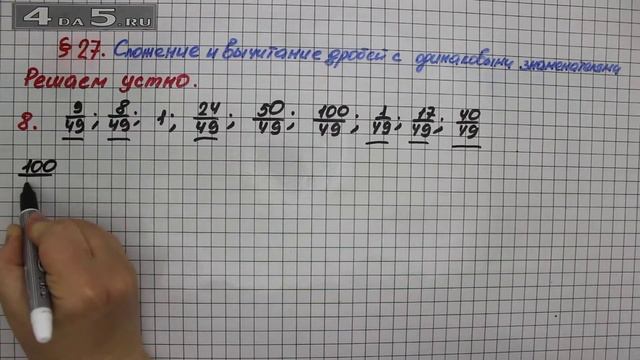 4DA5.RU
§ 27. Сложение и вычитание дробей с одинаковыми знаменателями
Решаем устно.
8. 9/49; 8/49; 1; 24/49; 50/49; 100/49; 1/49; 17/49; 40/49
100